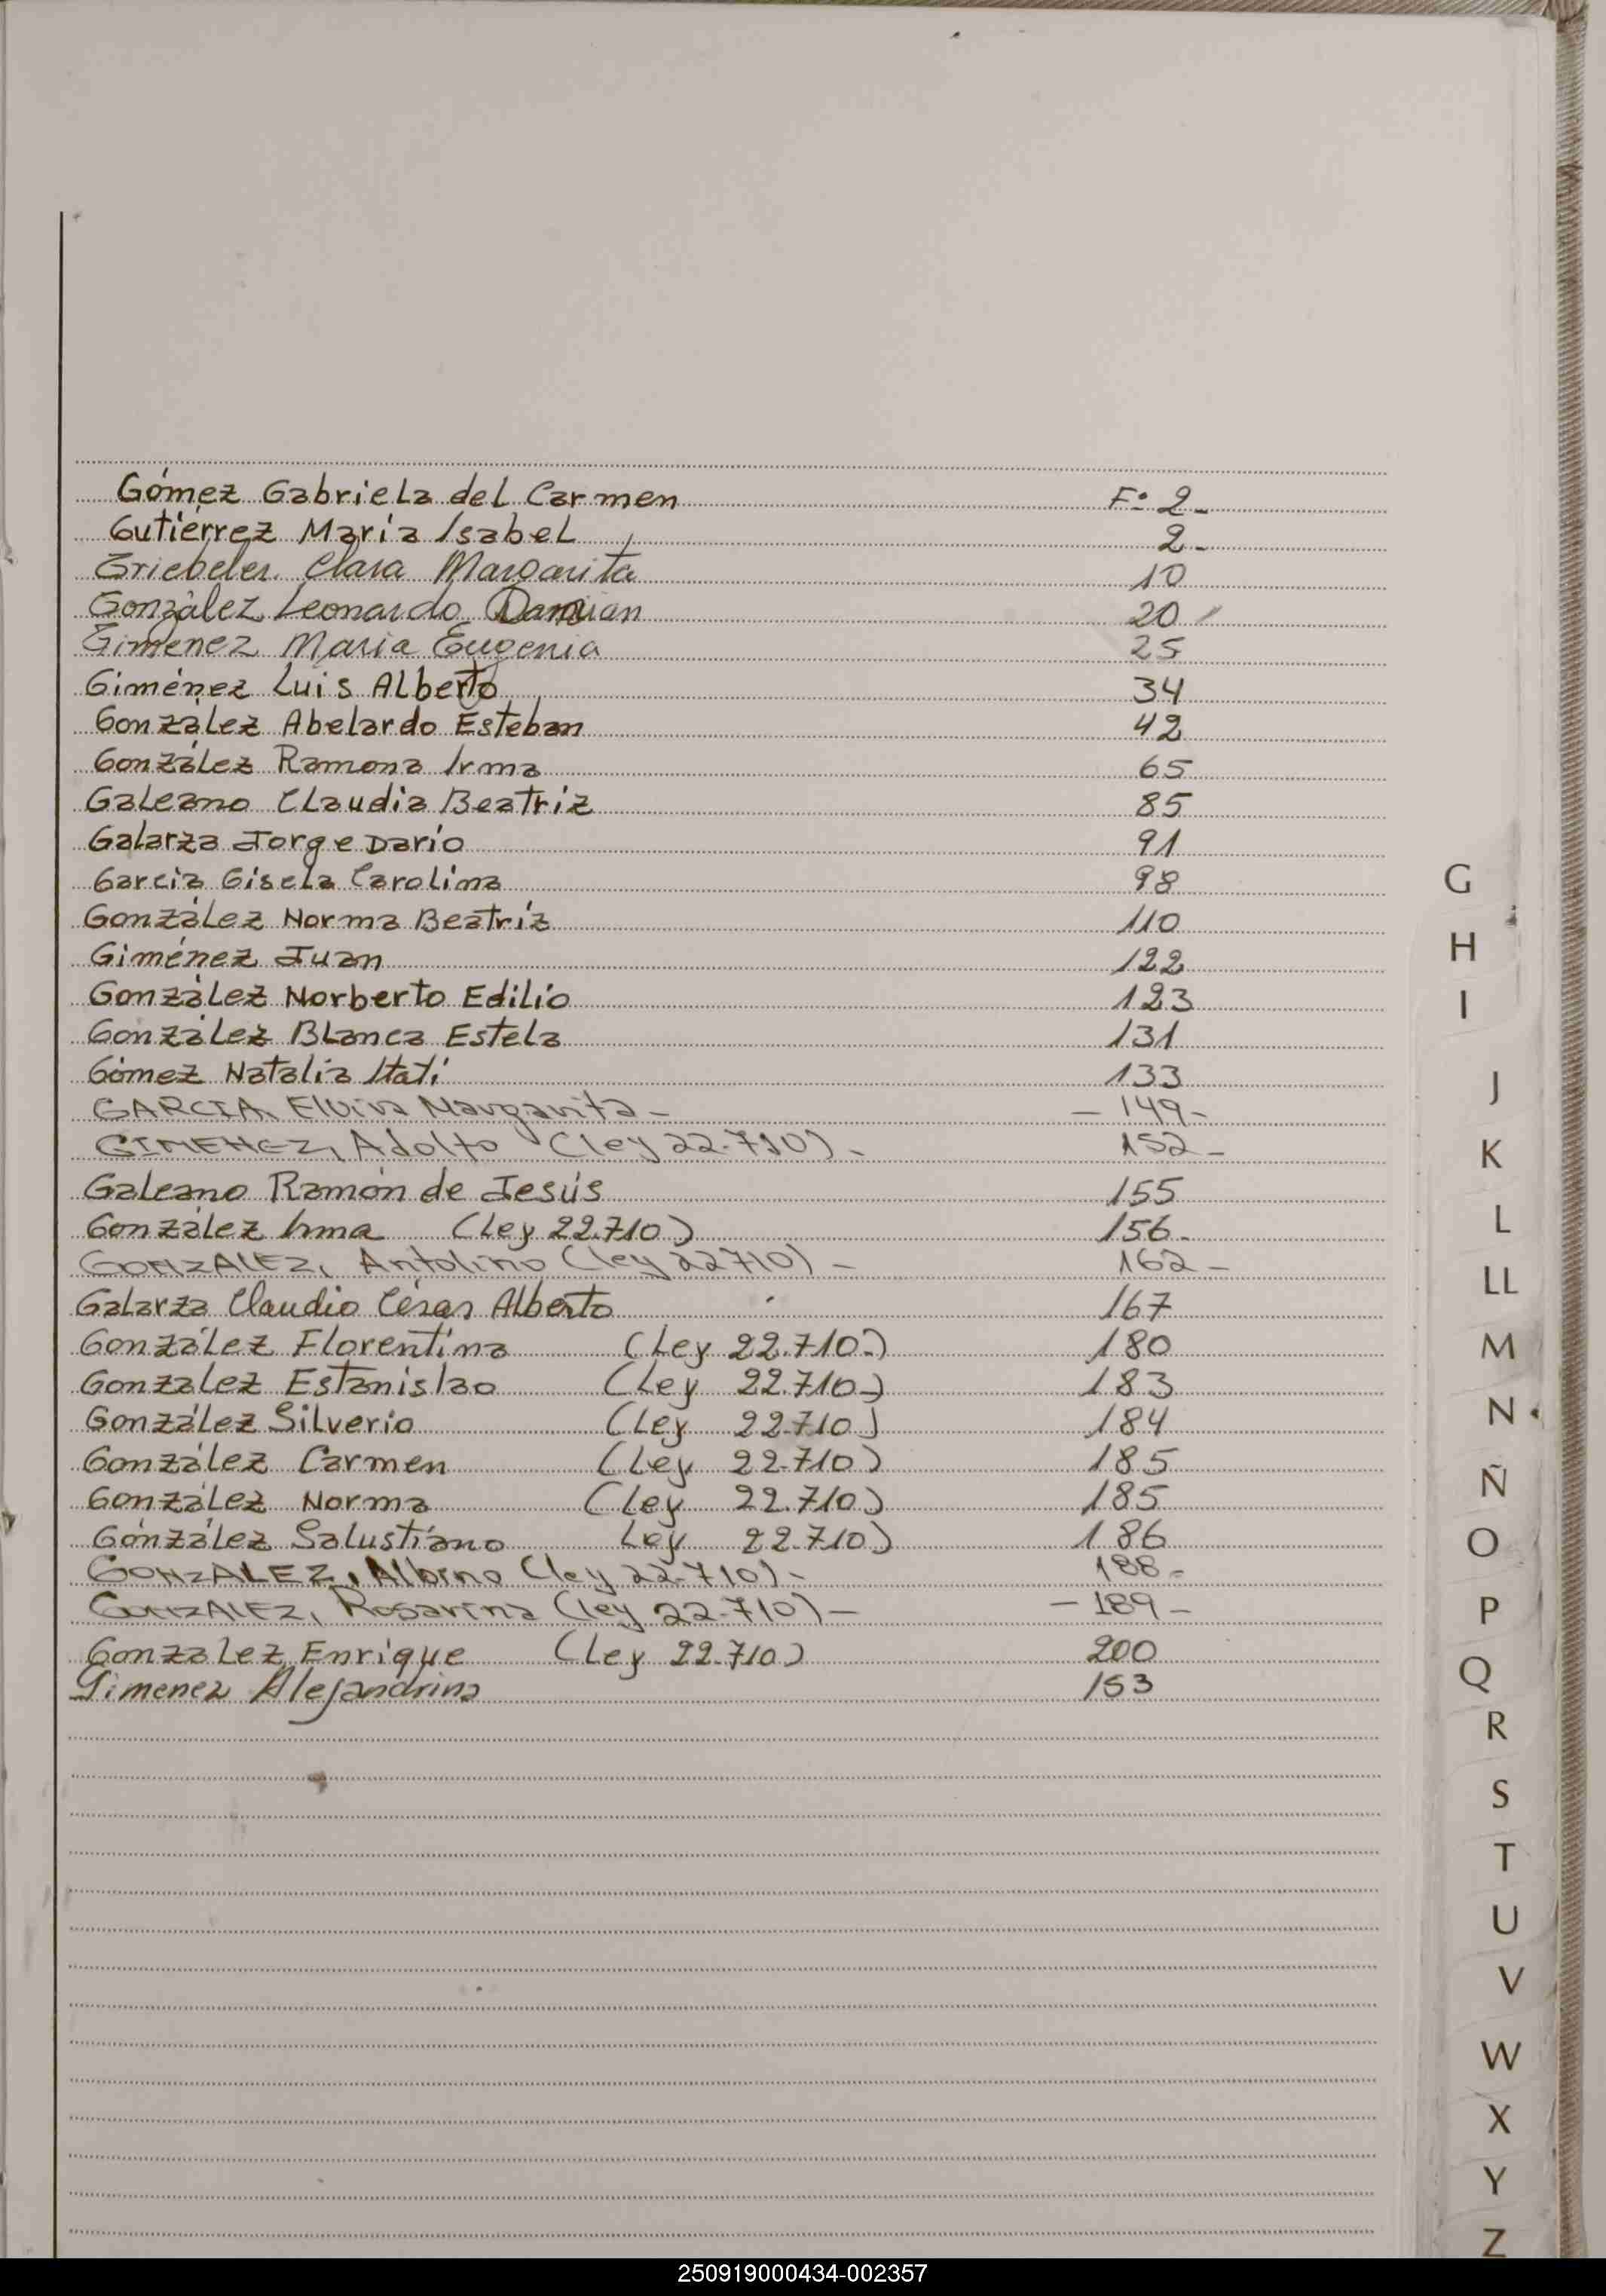 Gómez Gabriela del Carmen Fº 2-
Gutiérrez María Isabel 2-
Griebeler Clara Margarita 10
González Leonardo Damian 20
Gimenez Maria Eugenia 25
Giménez Luis Alberto 34
González Abelardo Esteban 42
González Ramona Irma 65
Galeano Claudia Beatriz 85
Galarza Jorge Darío 91
Garcia Gisela Carolina 98
González Norma Beatríz 110
Giménez Juan 122
González Norberto Edilio 123
González Blanca Estela 131
Gómez Natalia Itatí 133
GARCIA Elvira Margarita - - 149 -
GIMENEZ, Adolfo (ley 22.710) - 152 -
Galeano Ramón de Jesús 155
González Irma (Ley 22.710) 156.
GONZALEZ, Antolino (ley 22710) - 162 -
Galarza Claudio César Alberto 167
González Florentina (Ley 22.710.) 180
Gonzalez Estanislao (Ley 22.710) 183
González Silverio (Ley 22.710) 184
González Carmen (Ley 22.710) 185
González Norma (Ley 22.710) 185
González Salustiano Ley 22.710) 186
GONZALEZ, Albino (ley 22.710) - 188 -
GONZALEZ, Rosarina (ley 22.710) - - 189 -
Gonzalez Enrique (Ley 22.710) 200
Gimenez Alejandrina 153
G
H
I
J
K
L
LL
M
N
Ñ
O
P
Q
R
S
T
U
V
W
X
Y
Z
250919000434-002357